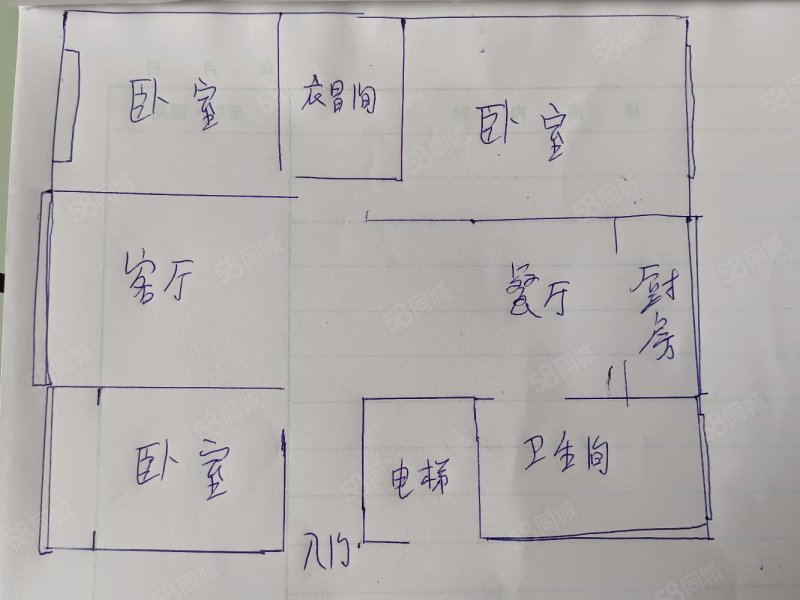 卧室
衣冒间
卧室
客厅
餐厅
厨房
卧室
电梯
卫生间
58同城